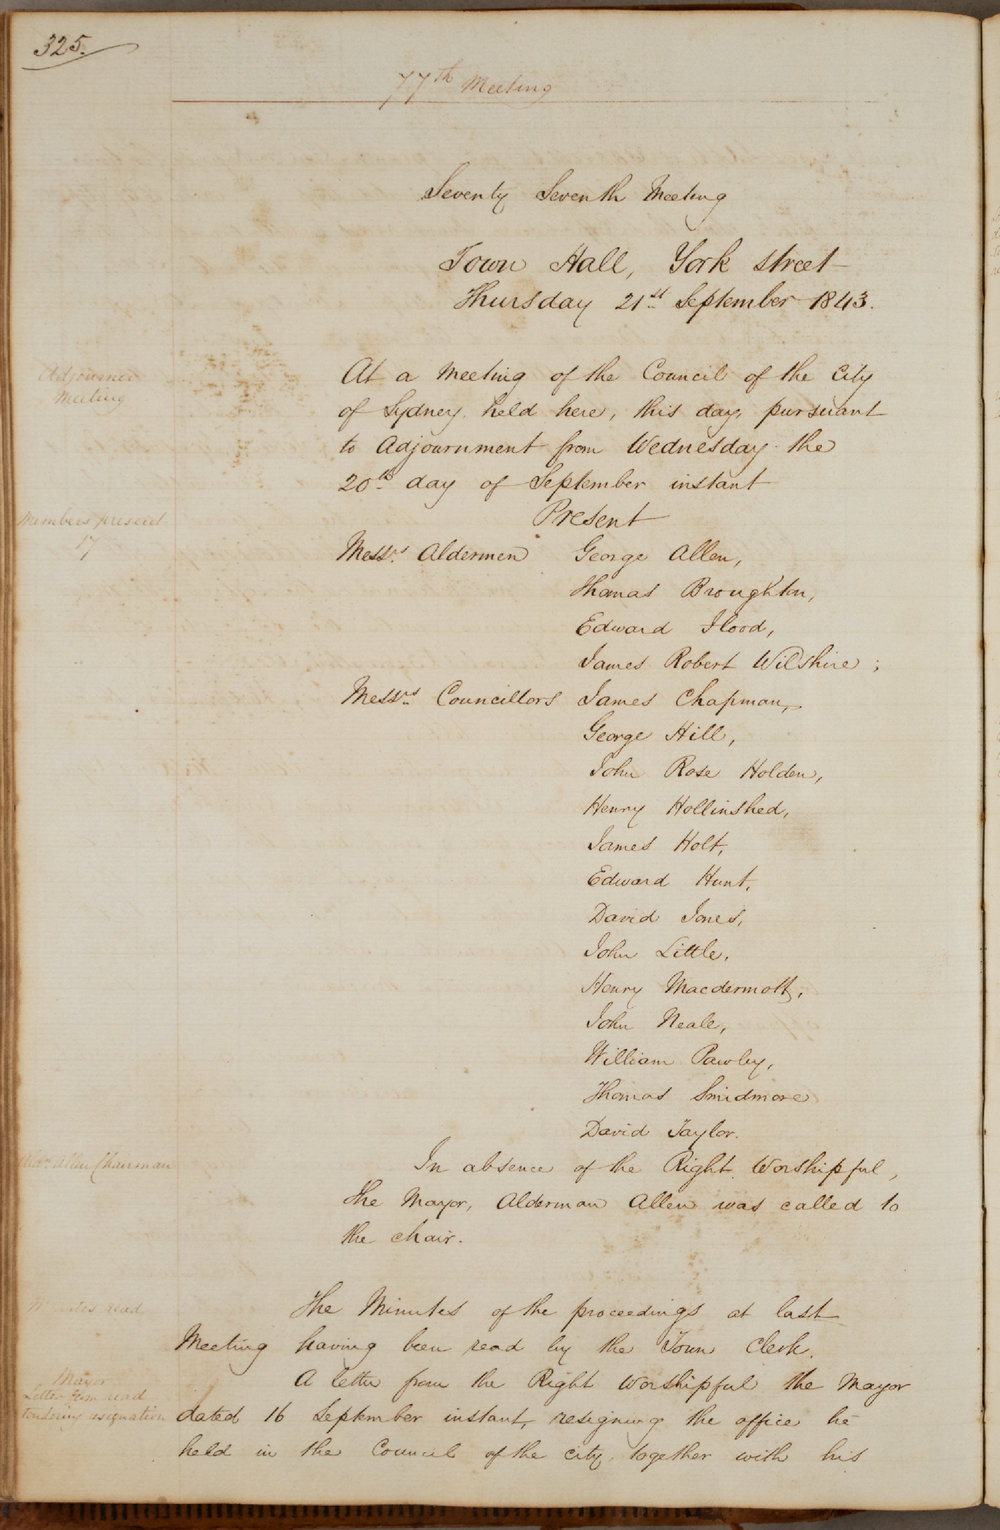 325.
77th Meeting
Seventy Seventh Meeting
Town Hall, York street
Thursday 21st September 1843.
Adjourned
Meeting
At a Meeting of the Council of the City
of Sydney held here, this day, pursuant
to Adjournment from Wednesday the
20th day of September instant
Members present
17
Present
Messrs. Aldermen George Allen,
Thomas Broughton,
Edward Flood,
James Robert Wilshire;
Messrs. Councillors James Chapman,
George Hill,
John Rose Holden,
Henry Hollinshed,
James Holt,
Edward Hunt,
David Jones,
John Little,
Henry Macdermott,
John Neale,
William Pawley,
Thomas Smidmore
David Taylor.
Aldn. Allen Chairman
In absence of the Right Worshipful,
the Mayor, Alderman Allen was called to
the chair.
Minutes read
The Minutes of the proceedings at last
Meeting having been read by the Town Clerk.
Mayor
Letter from read
tendering resignation
A letter from the Right Worshipful the Mayor
dated 16 September instant, resigning the office he
held in the Council of the city, together with his